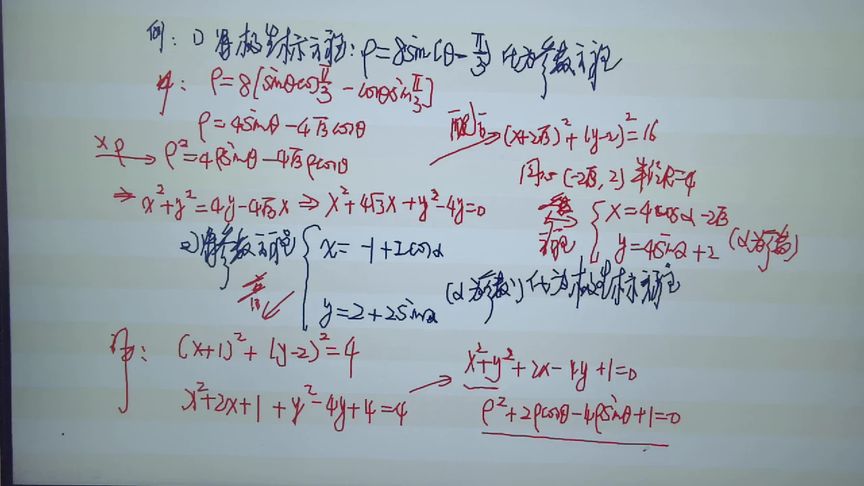 例: 1) 将极坐标方程: ρ=8sin(θ-π/3) 化为参数方程
解: ρ=8[sinθcosπ/3 - cosθsinπ/3]
ρ=4sinθ-4√3cosθ
×ρ → ρ²=4ρsinθ-4√3ρcosθ
⇒ x²+y²=4y-4√3x ⇒ x²+4√3x+y²-4y=0
配方 → (x+2√3)²+(y-2)²=16
圆心(-2√3,2) 半径R=4
方程 { x=4cosα-2√3
y=4sinα+2 (α为参数)
2) 将参数方程 { x=-1+2cosα
y=2+2sinα (α为参数) 化为极坐标方程
解: (x+1)²+(y-2)²=4
x²+2x+1+y²-4y+4=4
→ x²+y²+2x-4y+1=0
ρ²+2ρcosθ-4ρsinθ+1=0